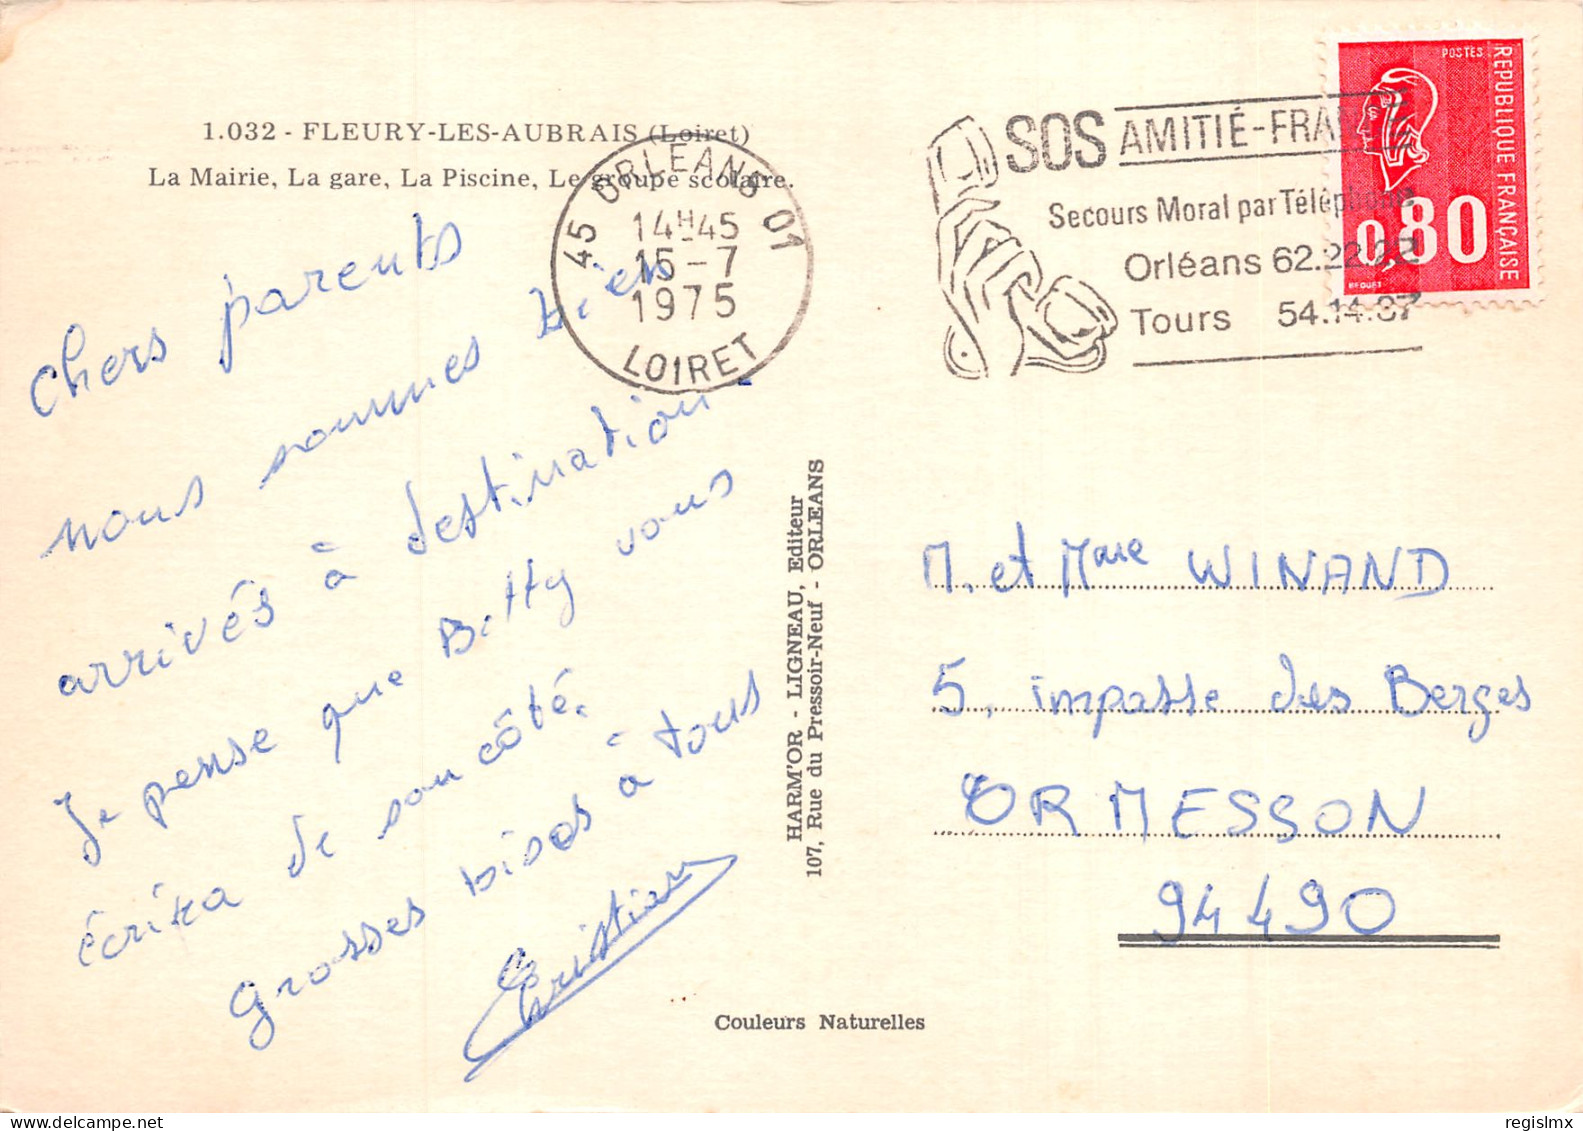 1.032 - FLEURY-LES-AUBRAIS (Loiret)
La Mairie, La gare, La Piscine, Le groupe scolaire.
45 ORLEANS 01
14H45
15-7
1975
LOIRET
SOS AMITIÉ-FRANCE
Secours Moral par Téléphone
Orléans 62.22.22
Tours 54.14.37
POSTES
REPUBLIQUE FRANÇAISE
0,80
BEQUET
Chers parents
nous sommes bien
arrivés à destination
Je pense que Betty vous
écrira de son côté.
Grosses bises à tous
Christian
HARM'OR - LIGNEAU, Editeur
107, Rue du Pressoir-Neuf - ORLEANS
M. et Mme WINAND
5, impasse des Berges
ORMESSON
94490
Couleurs Naturelles
delcampe.net
regislmx